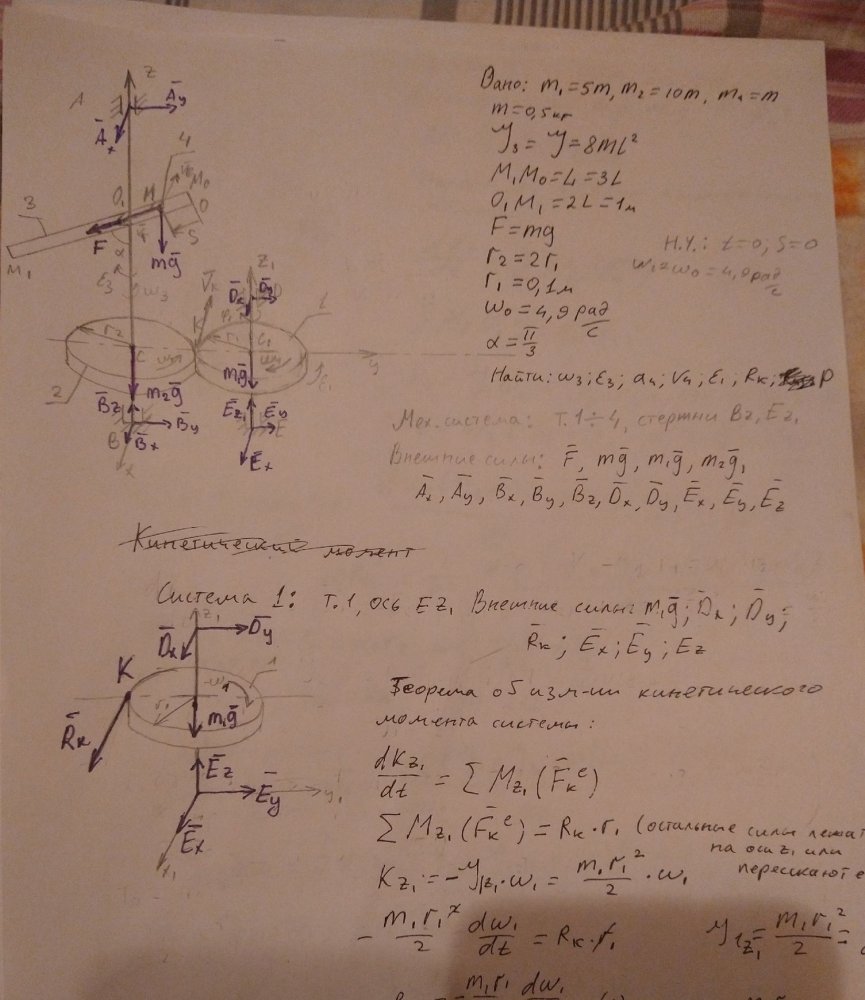 Дано: m₁=5m, m₂=10m, m₄=m
m=0,5кг
J₃=J=8mL²
M₁M₀=L=3L
O₁M₁=2L=1м
F=mg
r₂=2r₁
r₁=0,1м
ω₀=4,9 рад/с
α=π/3
Н.У.: t=0; S=0
ω₁=ω₀=4,9 рад/с
Найти: ω₃; ε₃; a₄; V₄; ε₁; Rк; P
Мех.система: т.1÷4, стержни Bz, Ez₁
Внешние силы: F̄, mḡ, m₁ḡ, m₂ḡ,
Āx, Āy, B̄x, B̄y, B̄z, D̄x, D̄y, Ēx, Ēy, Ēz
z
A
Āy
Āx
4
M₀
3
O₁
M
O
F̄
S
α
mḡ
M₁
ε₃
ω₃
z₁
V̄к
D̄x
K
1
r₂
r₁
C
C₁
y
2
m₂ḡ
m₁ḡ
B̄z
B̄y
B
B̄x
x
Ēz
Ēy
E
Ēx
Кинетический момент
Система 1: т.1, ось Ez₁ Внешние силы: m₁ḡ; D̄x; D̄y;
R̄к; Ēx; Ēy; Ez
z₁
D̄x
D̄y
K
1
ω₁
r₁
R̄к
m₁ḡ
Ēz
Ēy
y₁
Ēx
x₁
Теорема об изм-ии кинетического
момента системы:
dKz₁/dt = ΣMz₁(F̄кᵉ)
ΣMz₁(F̄кᵉ) = Rк·r₁ (остальные силы лежат
на оси z₁ или
пересекают е
Kz₁=-J₁z₁·ω₁= m₁r₁²/2 ·ω₁
- m₁r₁²/2 dω₁/dt = Rк·r₁
J₁z₁= m₁r₁²/2 =
m₁r₁ dω₁